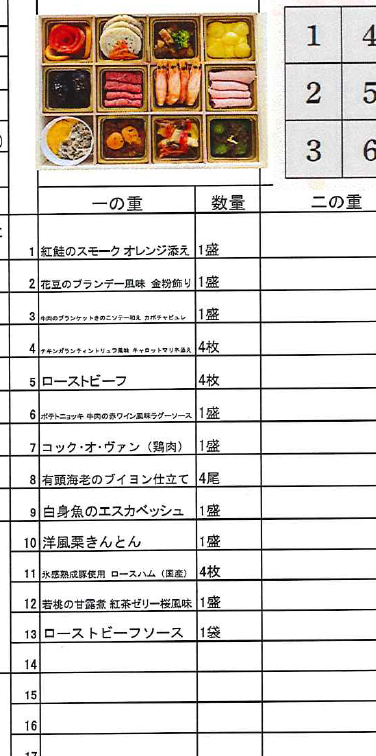 1 4
2 5
3 6
一の重 数量 二の重
1 紅鮭のスモーク オレンジ添え 1盛
2 花豆のブランデー風味 金粉飾り 1盛
3 牛肉のブランケットきのこソテー和え カボチャピュレ 1盛
4 チキンガランティントリュフ風味 キャロットマリネ添え 4枚
5 ローストビーフ 4枚
6 ポテトニョッキ 牛肉の赤ワイン風味ラグーソース 1盛
7 コック・オ・ヴァン（鶏肉） 1盛
8 有頭海老のブイヨン仕立て 4尾
9 白身魚のエスカベッシュ 1盛
10 洋風栗きんとん 1盛
11 氷感熟成豚使用 ロースハム（国産） 4枚
12 若桃の甘露煮 紅茶ゼリー桜風味 1盛
13 ローストビーフソース 1袋
14
15
16
17